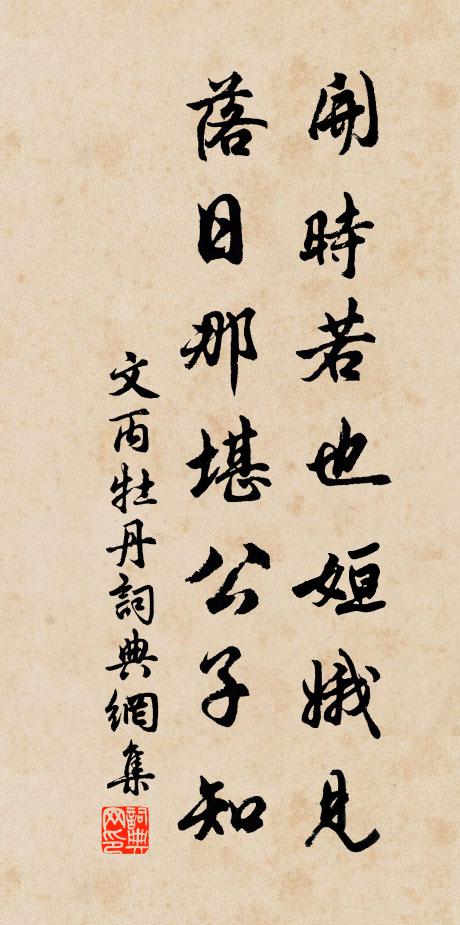 開時若也姮娥見
落日那堪公子知
文丙牡丹詞典網集
詞典网印